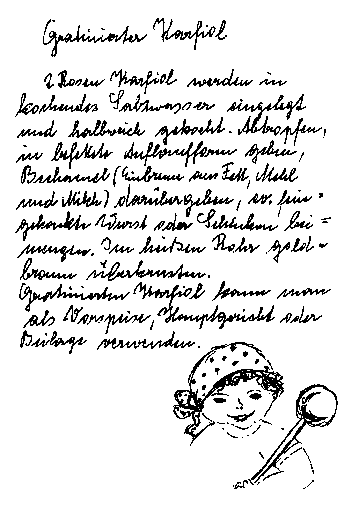 Gratinierter Karfiol
2 Rosen Karfiol werden in
kochendes Salzwasser eingelegt
und halbweich gekocht. Abtropfen,
in befettete Auflaufform geben,
Bechamel (Einbrenn aus Fett, Mehl
und Milch) darübergeben, ev. fein=
gehackte Wurst oder Schinken bei=
mengen. Im heißen Rohr gold=
braun überkrusten.
Gratinierten Karfiol kann man
als Vorspeise, Hauptgericht oder
Beilage verwenden.